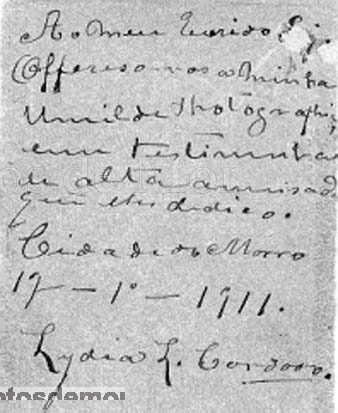 Ao meu Querido
Offereso-vos a Minha
Umilde Photographia,
em testimunha
de alta amisad
que lhe dedico.
Cidade do Morro
19 — 1º — 1911.
Lydia L. Cardoso.